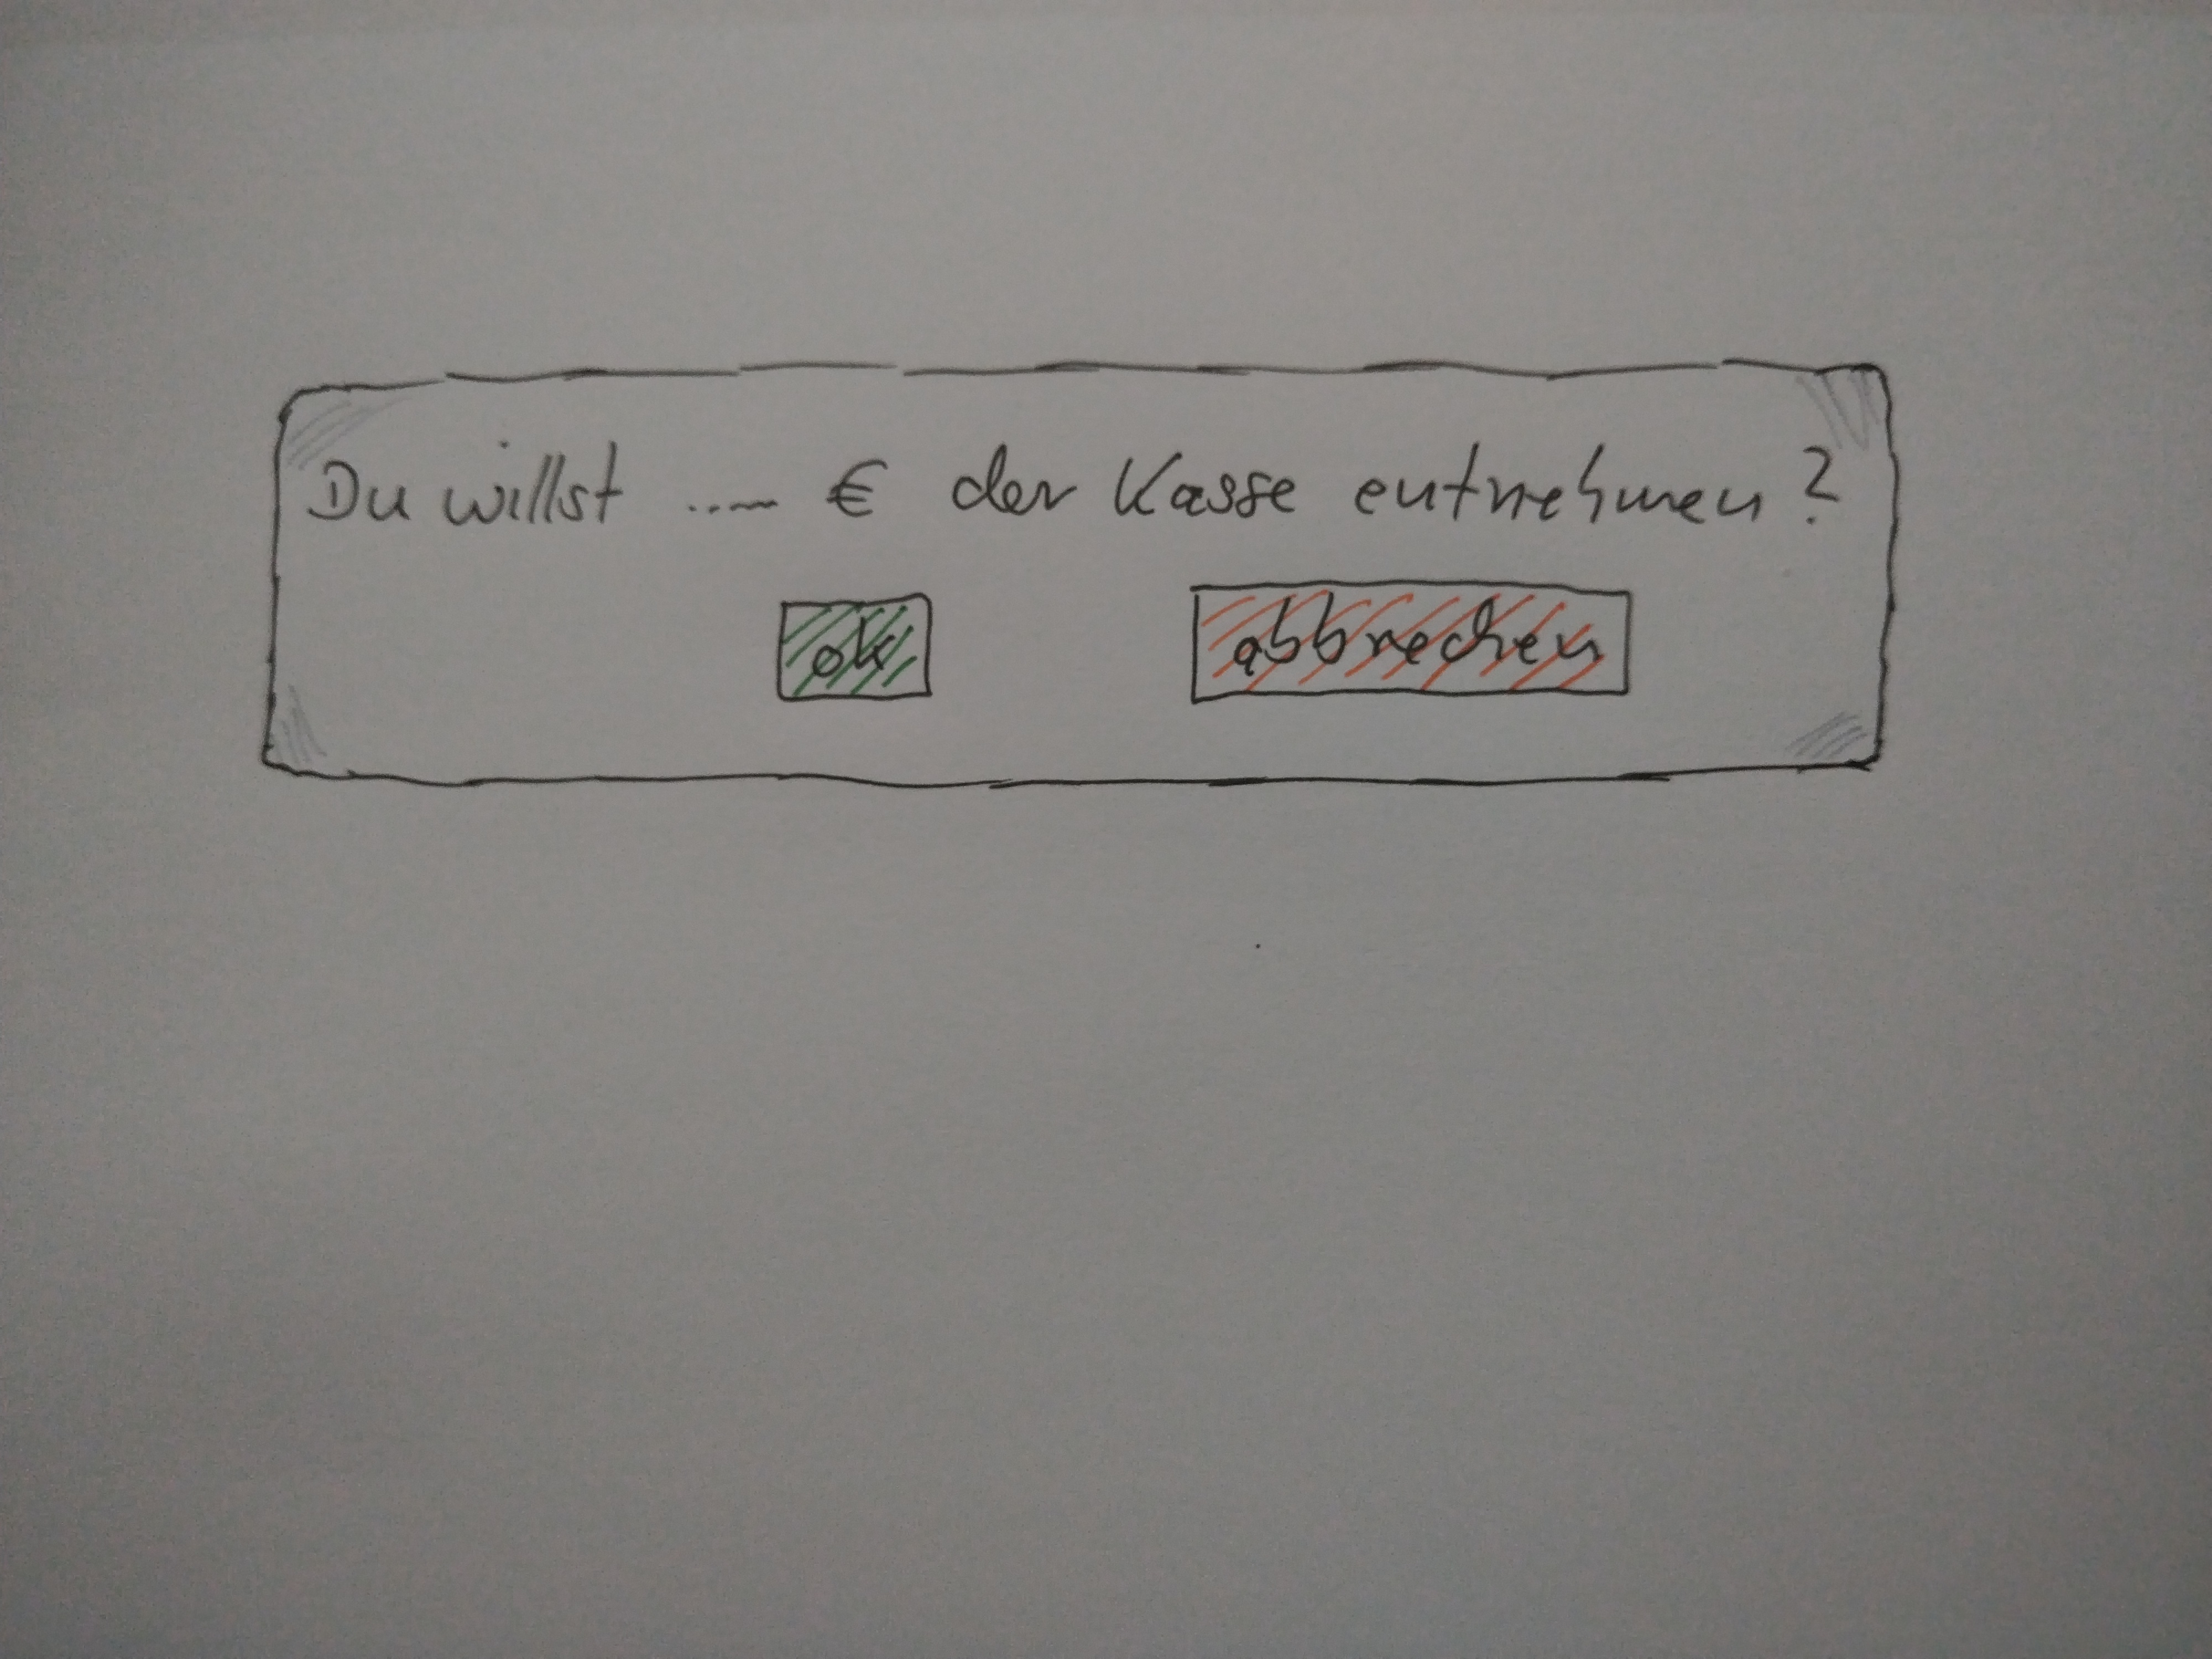 Du willst ..... € der Kasse entnehmen?
ok abbrechen